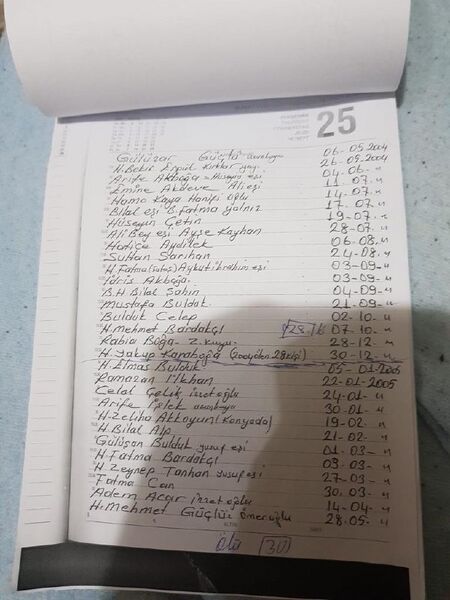 25
Gülüzar Güçlü uzunkuyu 06-05-2004
H. Bekir Ergül Kırklar yayı 26-05-2004
Arife Akboğa - Hüseyin eşi 04-06- "
Emine Akdeve Ali eşi 11-07 "
Hamo Kaya Hanifi oğlu 14-07 "
Bilal eşi B. Fatma Yalnız 17-07 "
Hüseyin Çetin 19-07- "
Ali Bey eşi Ayşe Kayhan 28-07- "
Hatice Aydilek 06-08- "
Sultan Sarıhan 24-08- "
H. Fatma Aykut ibrahim eşi 03-09- "
İdris Akboğa 03-09- "
B.H Bilal Şahin 04-09- "
Mustafa Bulduk 21-09- "
Bulduk Celep 02-10- "
H. mehmet Bardakçı 07-10- "
Rabia Boğa - Z. kuyu 28-12- "
H. Yakup Karaboğa (2004 ölen 28 kişi) 30-12- "
H. Elmas Bulduk 05-01-2005
Ramazan İlkhan 22-01-2005
Celal Çelik izzet oğlu 24-01- "
Arife İplek uzunkuyu 30-01- "
H. Zeliha Aktoyun (Konyada) 19-02- "
H. Bilal Alp 21-02- "
Gülüşan Bulduk yusuf eşi 01-03- "
H. Fatma Bardakçı 03-03- "
H Zeynep Tanhan yusuf eşi 27-03- "
Fatma Can 30-03- "
Adem Acar izzet oğlu 14-04- "
H. Mehmet Güçlü Ömer oğlu 28-05- "
ölü 30